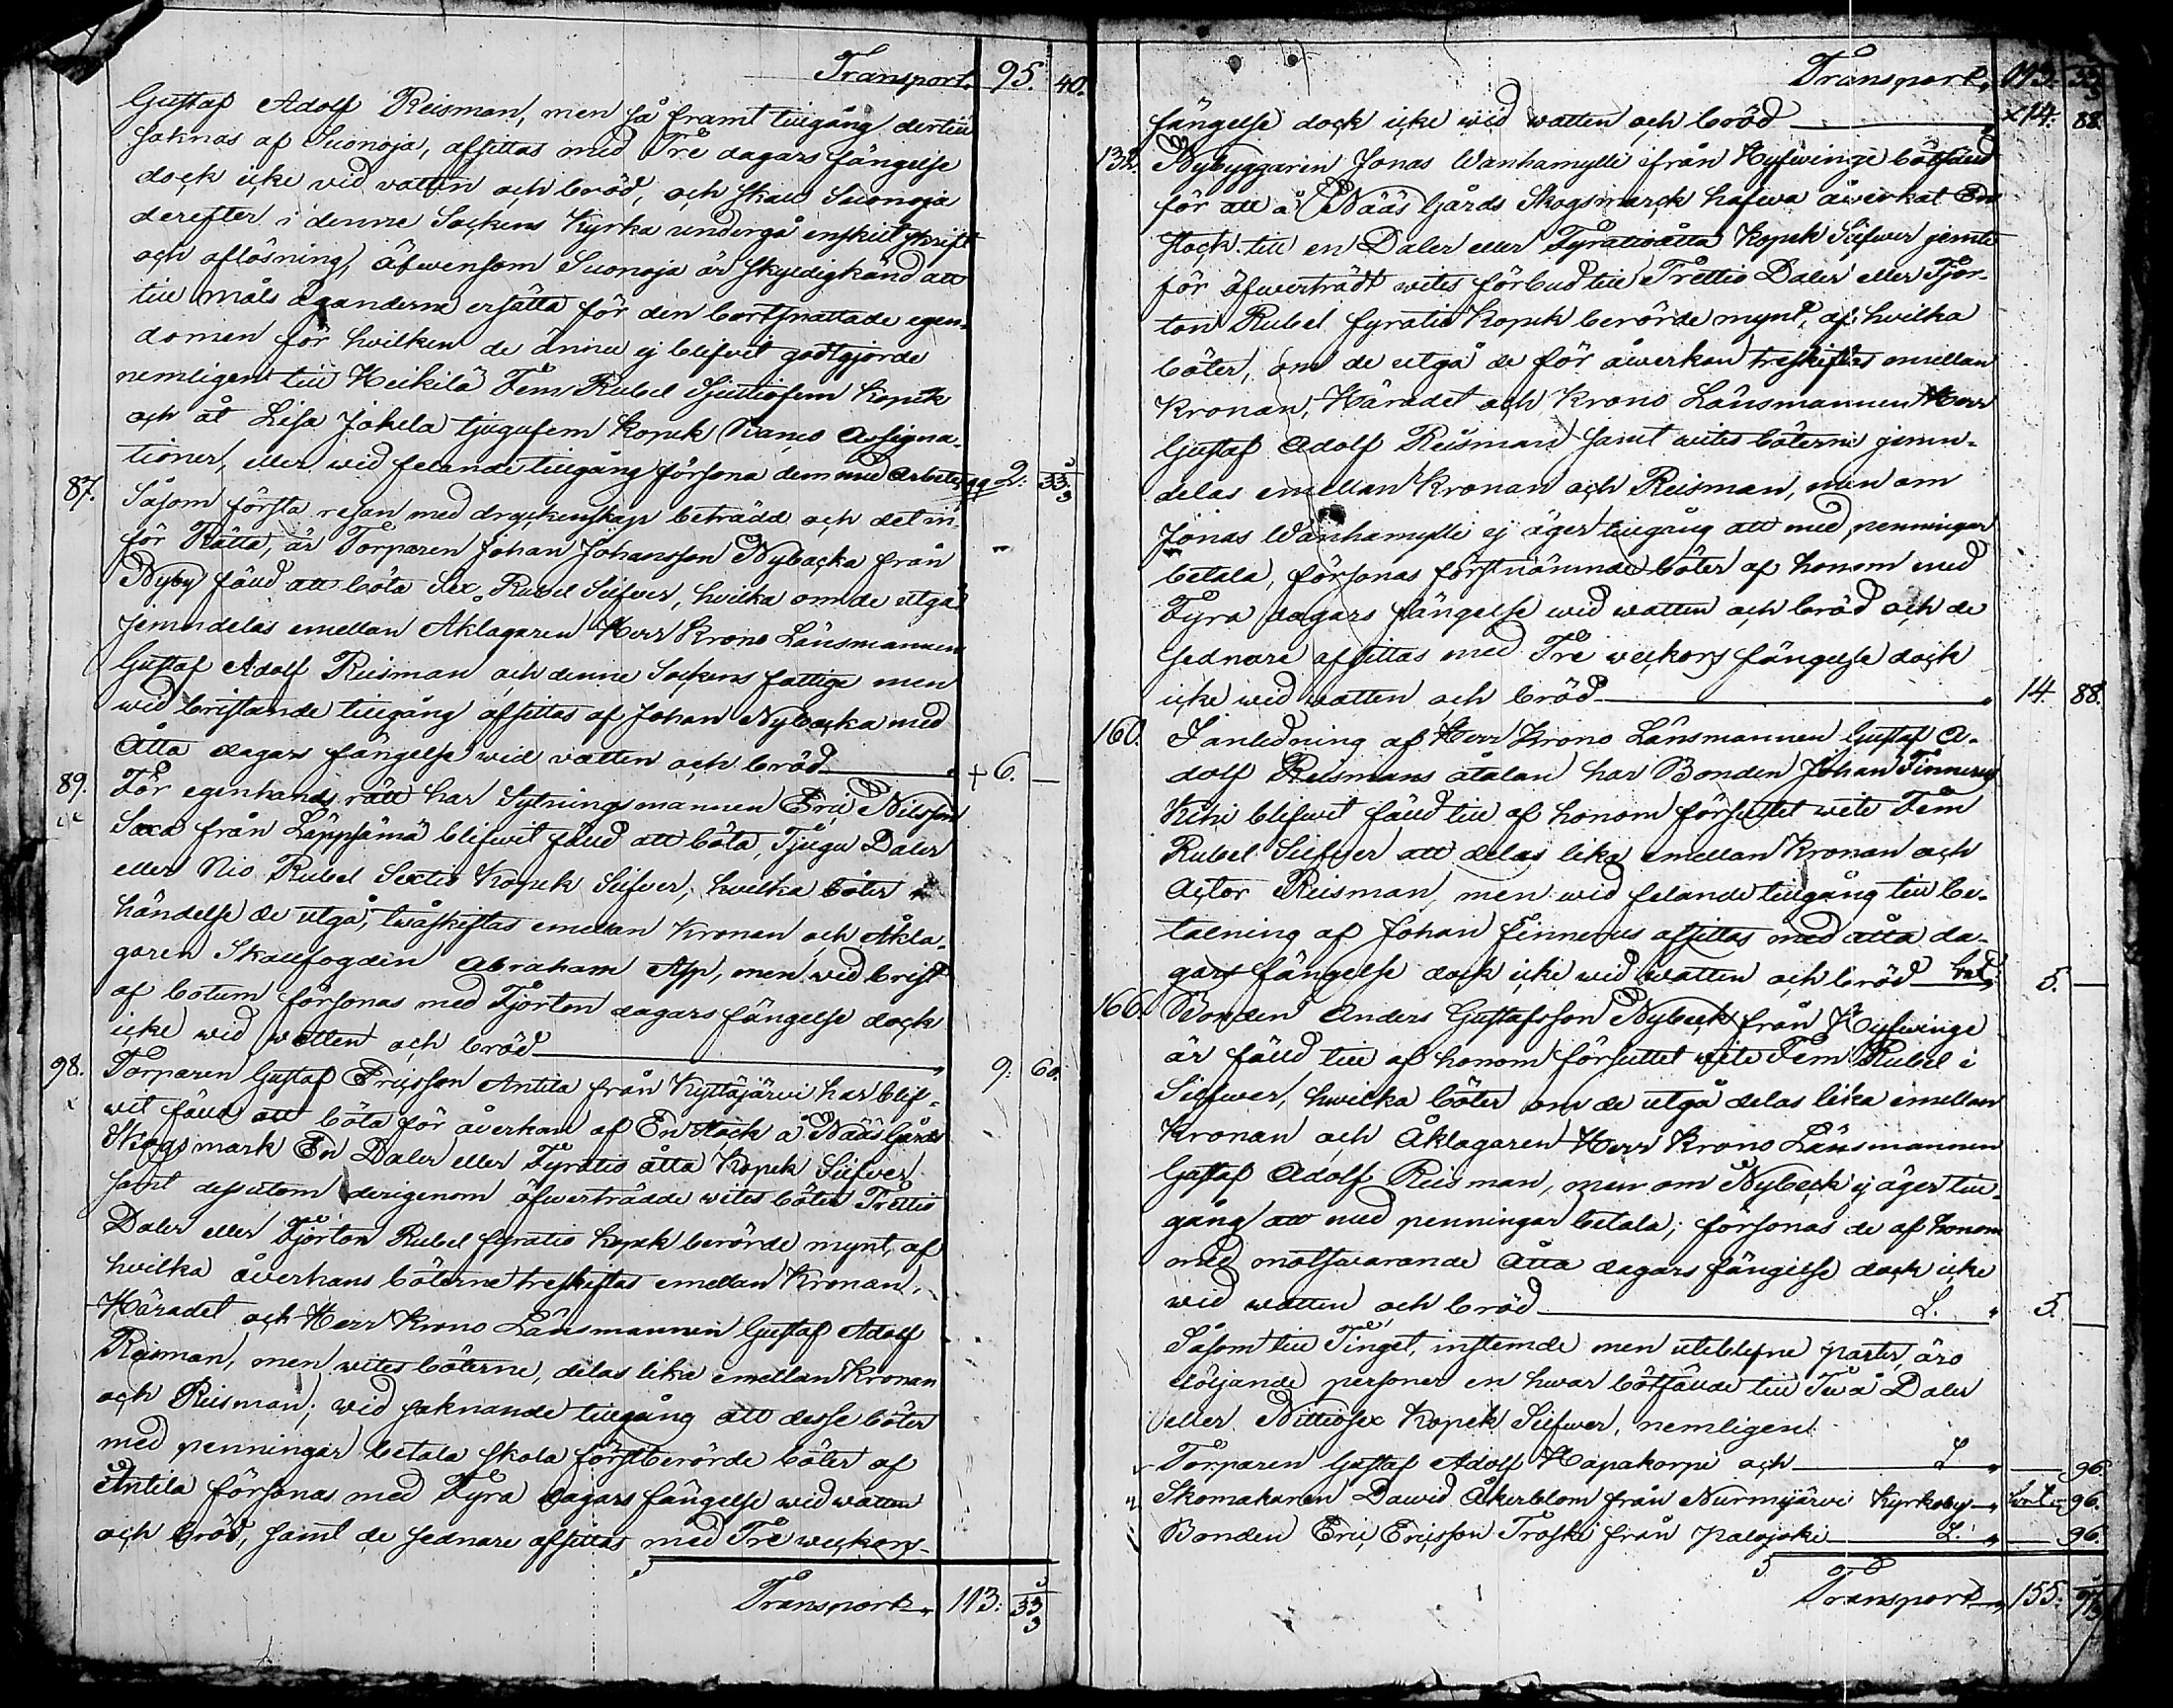 Transport. 95. 40.
Gustaf Adolf Reisman, men så framt tillgång dertill
saknas af Suonoja, afsittas med Tre dagars fängelse
dock icke vid vatten och bröd, och skall Suonoja
derefter i denne Sockens Kyrka undergå enskilt skrift
och aflösning, äfwensom Suonoja är skyldigkänd att
till måls äganderne ersätta för den bortsnattade egen-
domen för hvilken de ännu ej blifvit godtgjorde
nemligen till Heikilä Fem Rubel Sjuttiofem Kopek
och åt Lisa Jokela tjugufem Kopek Banco Assigna-
tioner, eller wid felande tillgång försona dem med arbete 2: 33.
87. Såsom första resan med dryckenskap beträdd och det in-
för Rätta, är Torparen Johan Johansson Nybacka från
Nyby fälld att böta Sex Rubel Silfver, hvilka om de utgå
jemndelas emellan Åklagaren Herr Krono Länsmannen
Gustaf Adolf Reisman och denne Sockens fattige men
wid bristande tillgång afsittas af Johan Nybacka med
Åtta dagars fängelse wid vatten och bröd + 6. —
89. För egenhands rätt har Sytningsmannen Eric Nilsson
Saxa från Läppsämä blifwit fälld att böta, Tjugu Daler
eller Nio Rubel Sextio Kopek Silfver, hvilka böter i
händelse de utgå, twåskiftas emellan Kronan och Åkla-
garen Skallfogden Abraham App, men wid brist
af botum försonas med Fjorton dagars fängelse dock
icke wid watten och bröd 9: 60.
98. Torparen Gustaf Ericsson Antila från Kyttäjärvi har blif-
wit fälld att böta för åverkan af En stock å Nääs Gårds
Skogsmark En Daler eller Fyratio åtta Kopek Silfver
samt dessutom derigenom öfwerträdde wites böter Trettio
Daler eller Fjorton Rubel fyratio Kopek berörde mynt, af
hvilka åverkans böterne treskiftas emellan Kronan,
Häradet och Herr Krono Länsmannen Gustaf Adolf
Reisman, men wites böterne, delas lika emellan Kronan
och Reisman; wid saknande tillgång att desse böter
med penningar betala skola förstberörde böter af
Antila försonas med Fyra dagars fängelse wid watten
och bröd, samt de sednare afsittas med Tre weckors
Transport 113: 33
Transport. 113. 33
fängelse dock icke wid watten och bröd x14: 88
132. Nybyggaren Jonas Wanhamylli från Hyfwinge bötfälld
för att å Nääs Gårds Skogsmarck hafwa åwerkat En
stock till en Daler eller Fyratioåtta Kopek Silfwer jemte
för öfwerträdt wites förbud till Trettio Daler eller Fjor-
ton Rubel fyratio Kopek berörde mynt, af hvilka
böter, om de utgå de för åwerkan treskiftas emellan
Kronan, Häradet och Krono Länsmannen Herr
Gustaf Adolf Reisman samt wites böterne jemn-
delas emellan Kronan och Reisman, men om
Jonas Wanhamylli ej äger tillgång att med penningar
betala, försonas förstnämnde böter af honom med
Fyra dagars fängelse wid watten och bröd och de
sednare afsittas med Tre weckors fängelse dock
icke wid watten och bröd 14. 88.
160. I anledning af Herr Krono Länsmannen Gustaf A-
dolf Reismans åtalan har Bonden Johan Finnerus
Kihi blifwit fälld till af honom försuttet wite Fem
Rubel Silfwer att delas lika emellan Kronan och
Actor Reisman, men wid felande tillgång till be-
talning af Johan Finnerus afsittas med åtta da-
gars fängelse dock icke wid watten och bröd 5. —
166. Bonden Anders Gustafsson Nybeck från Hyfwinge
är fälld till af honom försuttet wite Fem Rubel i
Silfwer, hwilka böter om de utgå delas lika emellan
Kronan och Åklagaren Herr Krono Länsmannen
Gustaf Adolf Reisman, men om Nybeck ej äger till-
gång att med penningar betala; försonas de af honom
med motswarande Åtta dagars fängelse dock icke
wid watten och bröd L. 5. —
Såsom till Tinget, instemde men uteblifne parter, äro
följande personer en hwar bötfällde till Två Daler
eller Nittiosex Kopek Silfwer, nemligen
Torparen Gustaf Adolf Hapakorpi och L — 96.
Skomakaren Dawid Åkerblom från Nurmijärvi Kyrkoby 96.
Bonden Eric Ericsson Troski från Palojoki L. — 96.
Transport 155.